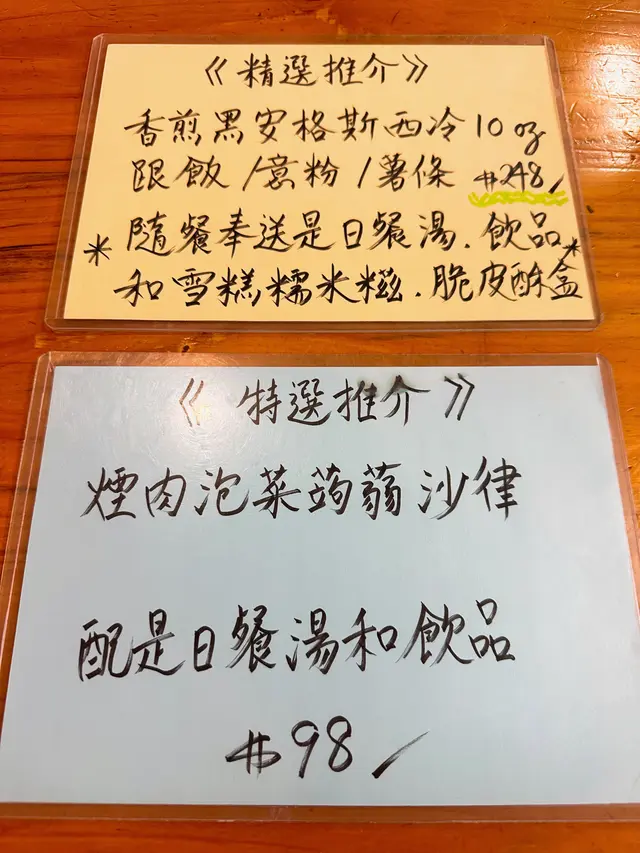 《精選推介》
香煎黑安格斯西冷10oz
跟飯/意粉/薯條 $248/
*隨餐奉送是日餐湯.飲品*
和雪糕糯米糍.脆皮酥盒
《特選推介》
煙肉泡菜蒟蒻沙律
配是日餐湯和飲品
$98/